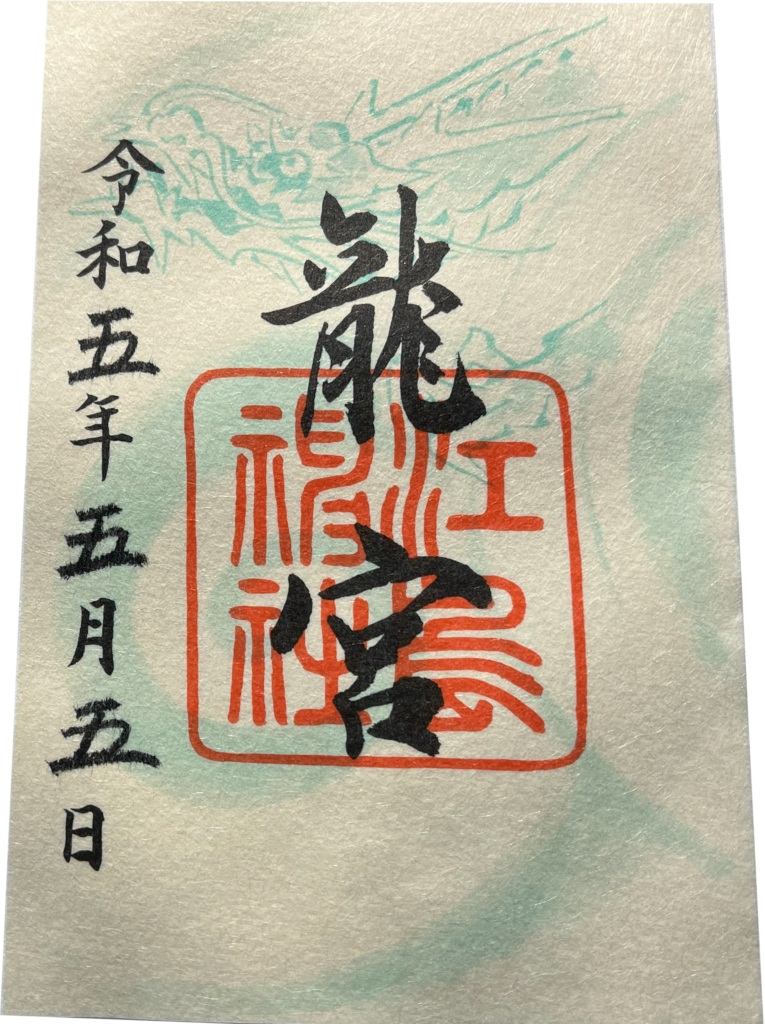 龍宮
江島
神社
令和五年五月五日